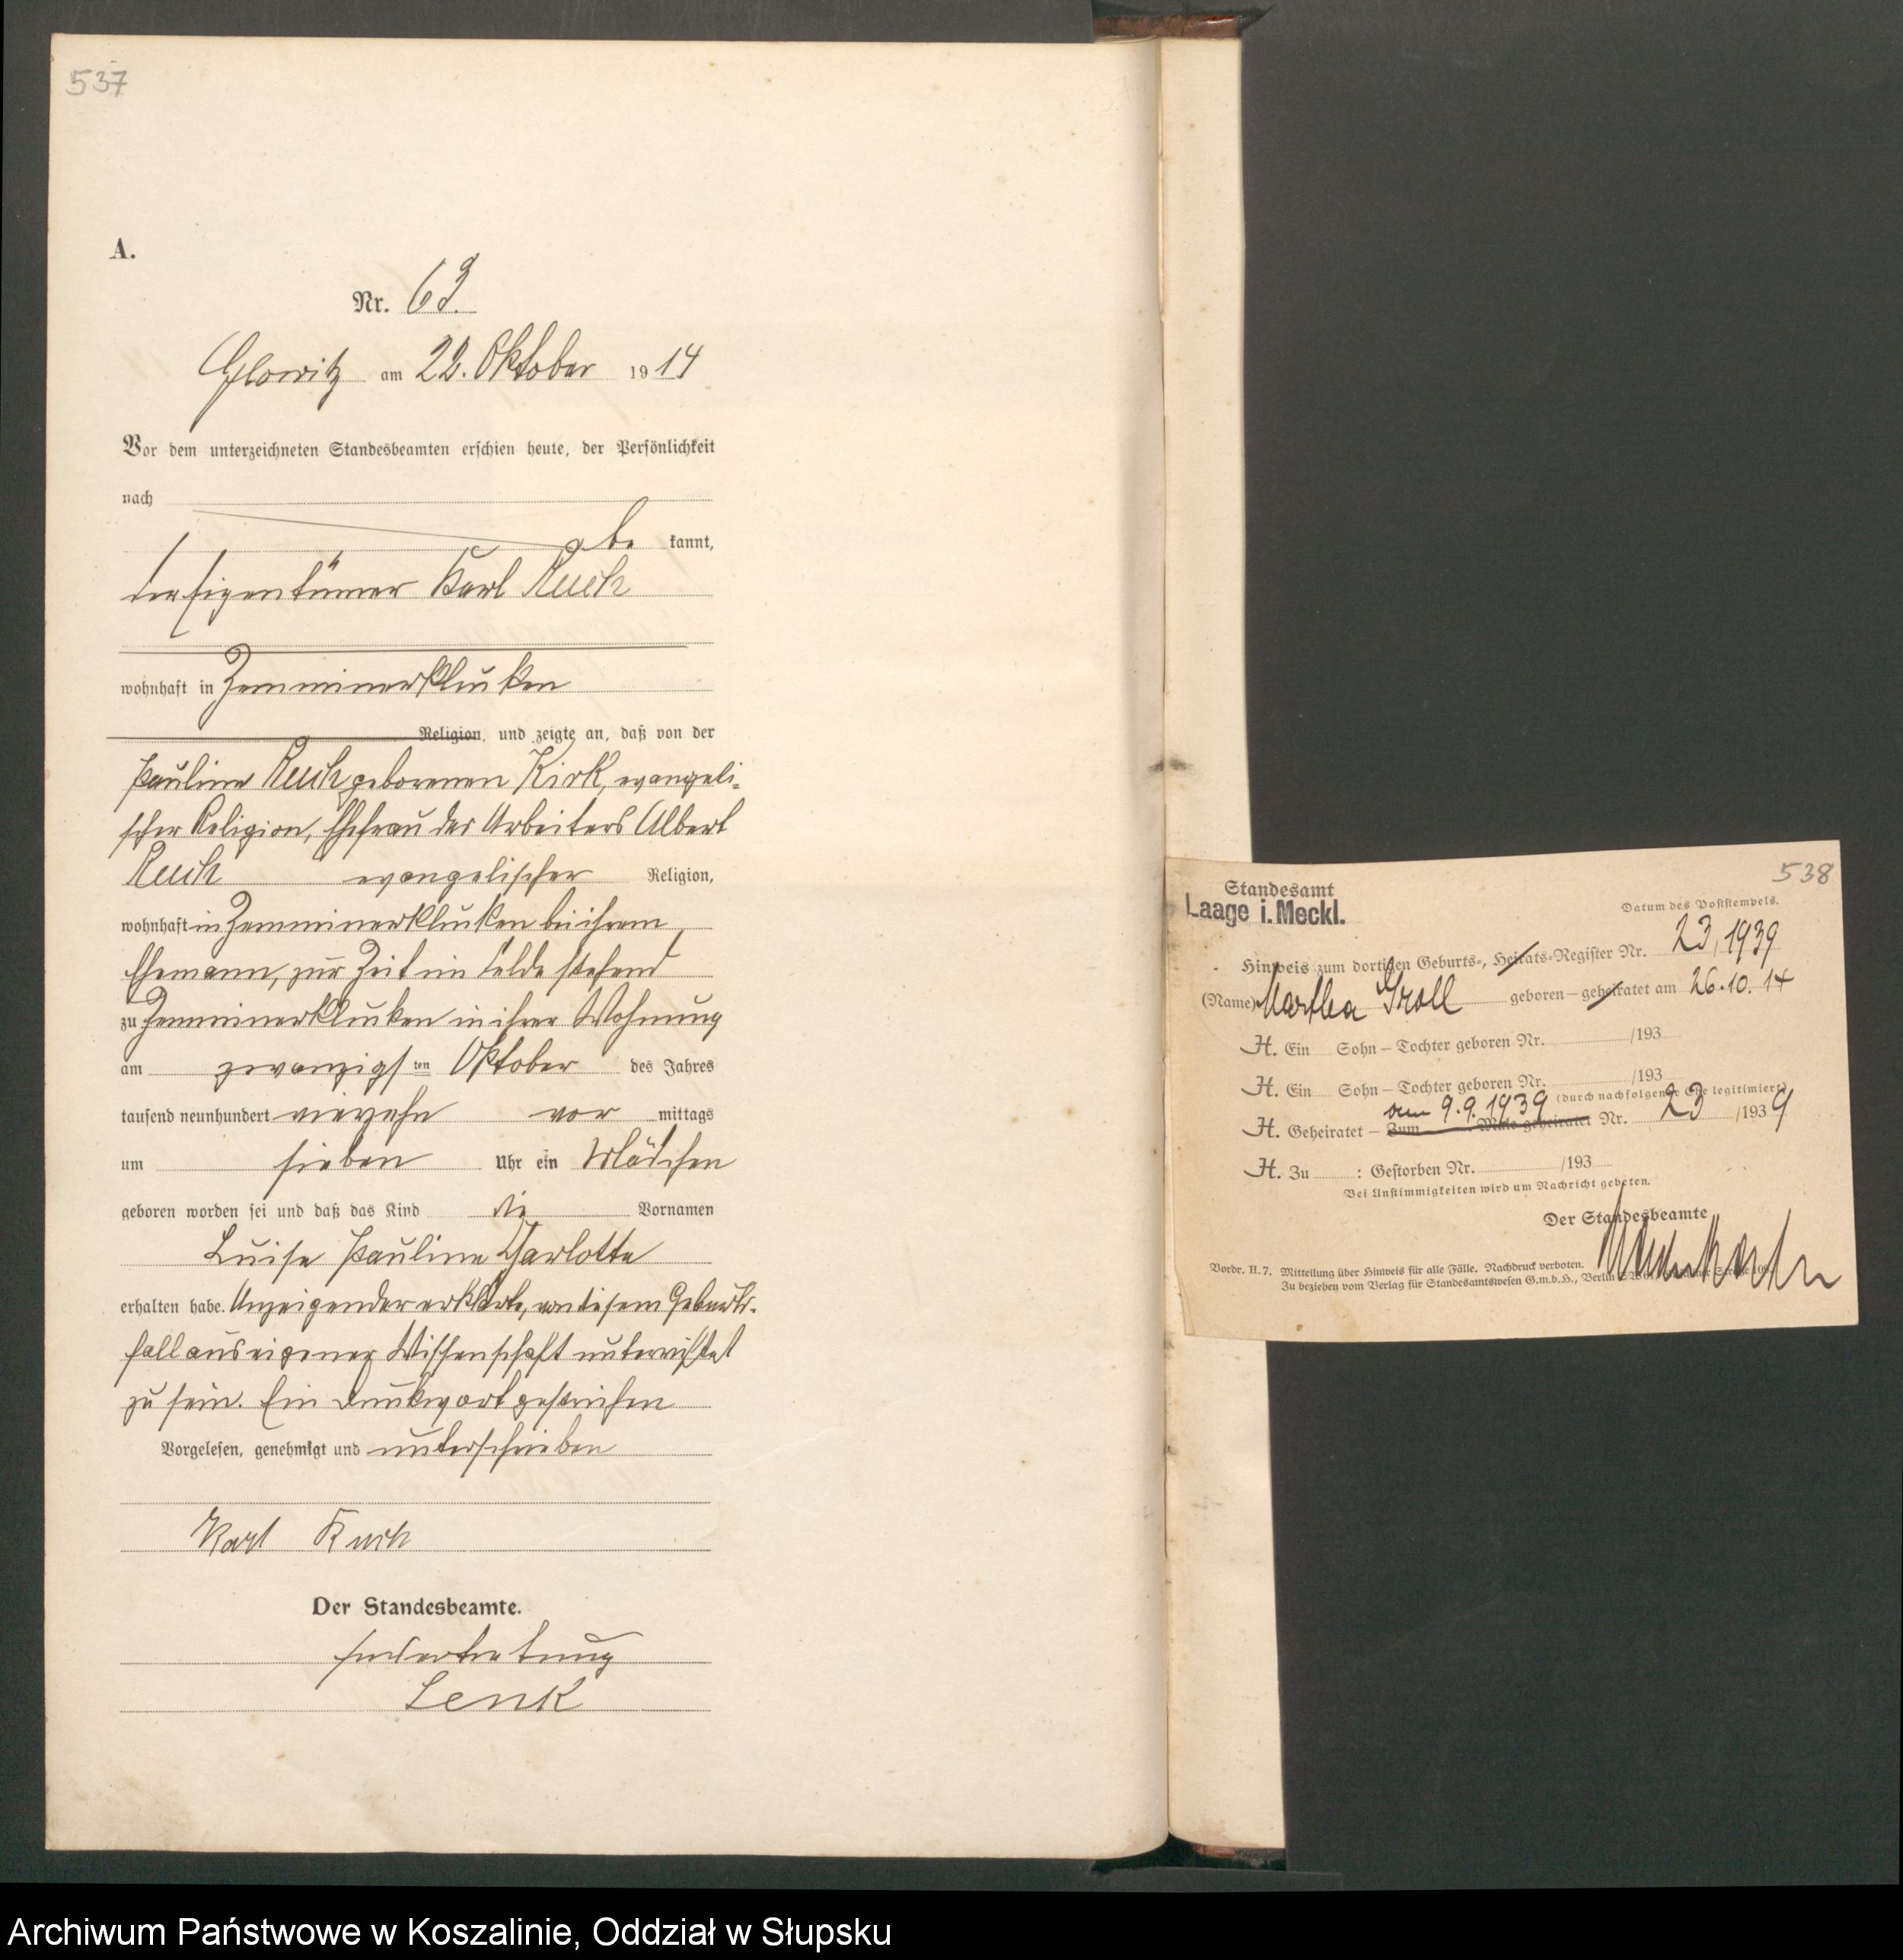 537
A.
Nr. 63.
Glowitz am 22. Oktober 1914
Vor dem unterzeichneten Standesbeamten erschien heute, der Persönlichkeit
nach
be kannt,
der Eigentümer Karl Ruch
wohnhaft in Zemminerklucken
Religion, und zeigte an, daß von der
Pauline Ruch geborenen Kirk, evangeli-
scher Religion, Ehefrau des Arbeiters Albert
Ruch evangelischer Religion,
wohnhaft in Zemminerklucken bei ihrem
Ehemann, zur Zeit im Felde stehend
zu Zemminerklucken in ihrer Wohnung
am zwanzigsten Oktober des Jahres
tausend neunhundert vierzehn vor mittags
um sieben Uhr ein Mädchen
geboren worden sei und daß das Kind die Vornamen
Luise Pauline Charlotte
erhalten habe. Anzeigender erklärte, von diesem Geburts-
fall aus eigener Wissenschaft unterrichtet
zu sein. Ein Druckwort gestrichen
Vorgelesen, genehmigt und unterschrieben
Karl Ruch
Der Standesbeamte.
In Vertretung
Lenk
538
Standesamt
Laage i. Meckl.
Datum des Poststempels.
Hinweis zum dortigen Geburts-, Heirats-Register Nr. 23, 1939
(Name) Martha Groll geboren – geheiratet am 26.10.14
H. Ein Sohn – Tochter geboren Nr. /193
H. Ein Sohn – Tochter geboren Nr. /193
(durch nachfolgende Ehe legitimiert)
am 9.9.1939
H. Geheiratet – Zum Male geheiratet Nr. 23 /1939
H. Zu : Gestorben Nr. /193
Bei Unstimmigkeiten wird um Nachricht gebeten.
Der Standesbeamte
Vordr. H. 7. Mitteilung über Hinweis für alle Fälle. Nachdruck verboten.
Zu beziehen vom Verlag für Standesamtswesen G.m.b.H., Berlin
Archiwum Państwowe w Koszalinie, Oddział w Słupsku